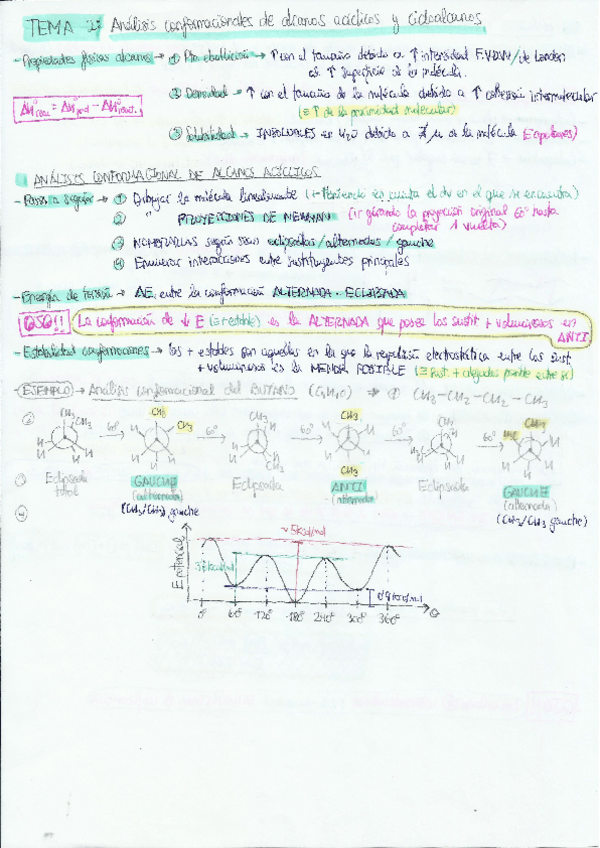 TEMA 2: Análisis conformacionales de alcanos acíclicos y cicloalcanos
- Propiedades físicas alcanos → ① Pto. ebullición → ↑ con el tamaño debido a ↑ intensidad F.VDW / de London
↑ superficie de la molécula.
② Densidad → ↑ con el tamaño de la molécula debido a ↑ cohesión intermolecular
(≡ ↑ de la proximidad molecular)
③ Solubilidad → INSOLUBLES en H₂O debido a μ de la molécula
ANÁLISIS CONFORMACIONAL DE ALCANOS ACÍCLICOS
- Pasos a seguir → ① Dibujar la molécula linealmente (+ teniendo en cuenta el en el que se encuentra)
② " PROYECCIONES DE NEWMAN (ir girando la proyección original 60° hasta
completar 1 vuelta)
③ NOMBRARLAS según sean eclipsadas / alternadas / gauche
④ Enumerar interacciones entre sustituyentes principales
- Energía de torsión → ΔE entre la conformación ALTERNADA - ECLIPSADA
OJO!! La conformación de ↓ E (≡ + estable) es la ALTERNADA que posee los sustit + voluminosos en
ANTI
- Estabilidad conformaciones → las + estables son aquellas en la que la repulsión electrostática entre los sust.
+ voluminosos es la MENOR POSIBLE (≡ sust. + alejados posible entre sí)
- EJEMPLO → Análisis conformacional del BUTANO → ① CH₃-CH₂-CH₂-CH₃
② CH₃ CH₃ H H H H 60° CH₃ CH₃ H H H H 60° 60° CH₃ H H H H CH₃ 60° 60° CH₃ H₃C H H H H
③ Eclipsada total GAUCHE (alternada) Eclipsada ANTI (alternada) Eclipsada GAUCHE (alternada)
④ (CH₃/CH₃) gauche (CH₃/CH₃ gauche)
E potencial
~5kcal/mol
0° 60° 120° 180° 240° 300° 360° θ